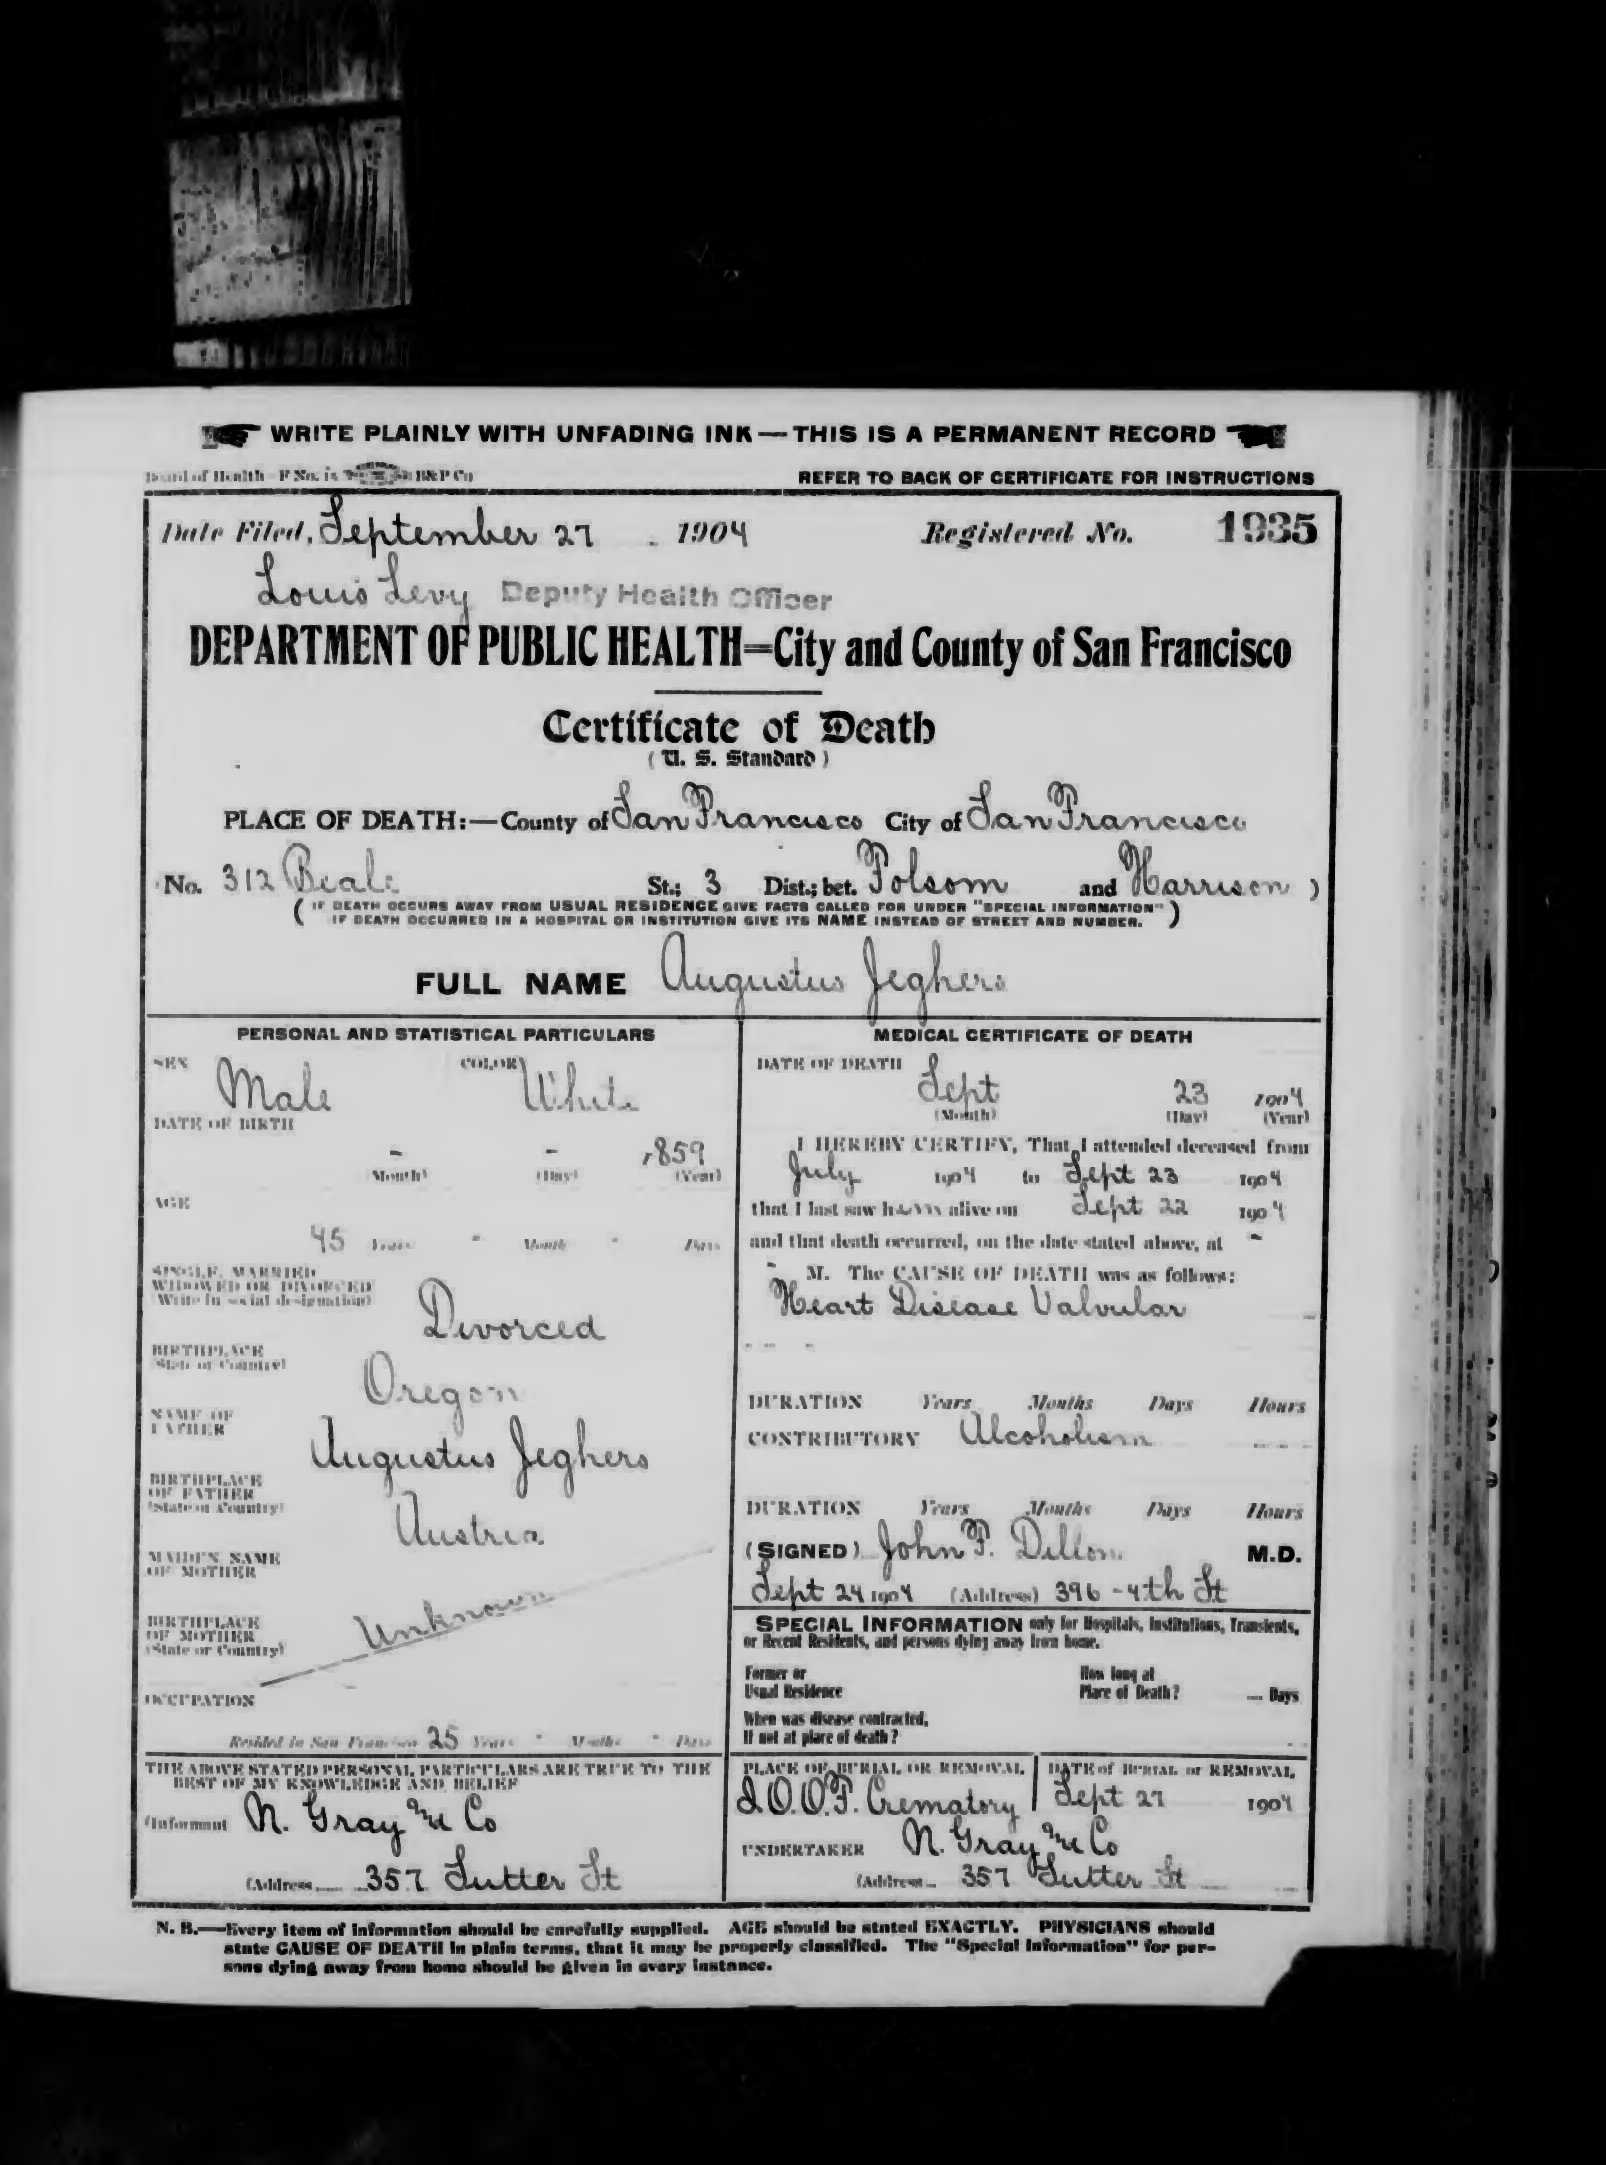 WRITE PLAINLY WITH UNFADING INK — THIS IS A PERMANENT RECORD
Board of Health - F No. B&P Co REFER TO BACK OF CERTIFICATE FOR INSTRUCTIONS
Date Filed, September 27 . 1904 Registered No. 1935
Louis Levy Deputy Health Officer
DEPARTMENT OF PUBLIC HEALTH=City and County of San Francisco
Certificate of Death
( U. S. Standard )
PLACE OF DEATH:—County of San Francisco City of San Francisco
No. 312 Beale St.; 3 Dist.; bet. Folsom and Harrison )
( IF DEATH OCCURS AWAY FROM USUAL RESIDENCE GIVE FACTS CALLED FOR UNDER "SPECIAL INFORMATION" )
IF DEATH OCCURRED IN A HOSPITAL OR INSTITUTION GIVE ITS NAME INSTEAD OF STREET AND NUMBER.
FULL NAME Augustus Jeghers
PERSONAL AND STATISTICAL PARTICULARS
SEX Male COLOR White
DATE OF BIRTH
- - 1859
(Month) (Day) (Year)
AGE
45 Years " Months " Days
SINGLE, MARRIED
WIDOWED OR DIVORCED
(Write in social designation)
Divorced
BIRTHPLACE
(State or Country)
Oregon
NAME OF
FATHER
Augustus Jeghers
BIRTHPLACE
OF FATHER
(State or Country)
Austria
MAIDEN NAME
OF MOTHER
Unknown
BIRTHPLACE
OF MOTHER
(State or Country)
OCCUPATION
Resided in San Francisco 25 Years " Months " Days
THE ABOVE STATED PERSONAL PARTICULARS ARE TRUE TO THE
BEST OF MY KNOWLEDGE AND BELIEF
(Informant N. Gray and Co
(Address 357 Sutter St
MEDICAL CERTIFICATE OF DEATH
DATE OF DEATH
Sept 23 1904
(Month) (Day) (Year)
I HEREBY CERTIFY, That I attended deceased from
July 1904 to Sept 23 1904
that I last saw him alive on Sept 22 1904
and that death occurred, on the date stated above, at -
- M. The CAUSE OF DEATH was as follows:
Heart Disease Valvular
DURATION Years Months Days Hours
CONTRIBUTORY Alcoholism
DURATION Years Months Days Hours
(SIGNED) John F. Dillon M.D.
Sept 24 1904 (Address) 396 - 4th St
SPECIAL INFORMATION only for Hospitals, Institutions, Transients,
or Recent Residents, and persons dying away from home.
Former or
Usual Residence
How long at
Place of Death? — Days
When was disease contracted,
If not at place of death?
PLACE OF BURIAL OR REMOVAL
I.O.O.F. Crematory
DATE of BURIAL or REMOVAL
Sept 27 1904
UNDERTAKER N. Gray and Co
(Address 357 Sutter St
N. B.—Every item of information should be carefully supplied. AGE should be stated EXACTLY. PHYSICIANS should
state CAUSE OF DEATH in plain terms, that it may be properly classified. The "Special Information" for per-
sons dying away from home should be given in every instance.